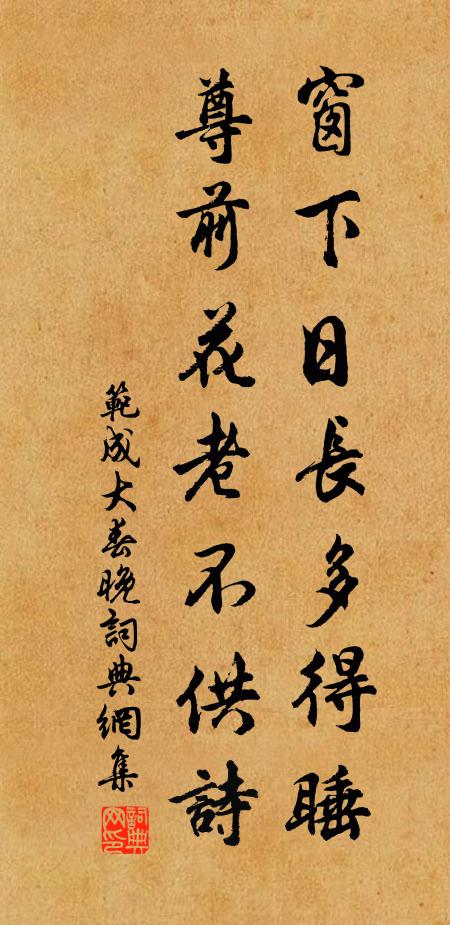 窗下日長多得睡
尊前花老不供詩
範成大春晚詞典網集
詞典網印